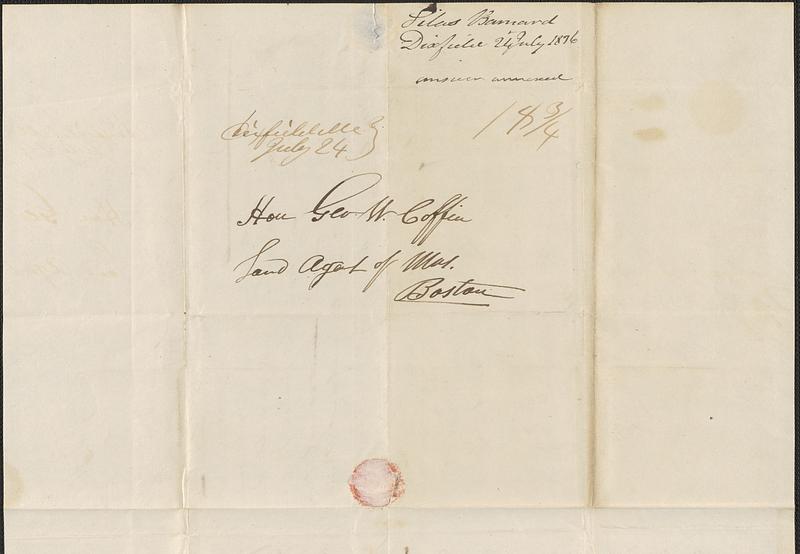 Silas Barnard
Dixfield 24 July 1836
answer annexed
Dixfield Me
July 24
18 3/4
Hon Geo W. Coffin
Land Agent of Mas.
Boston